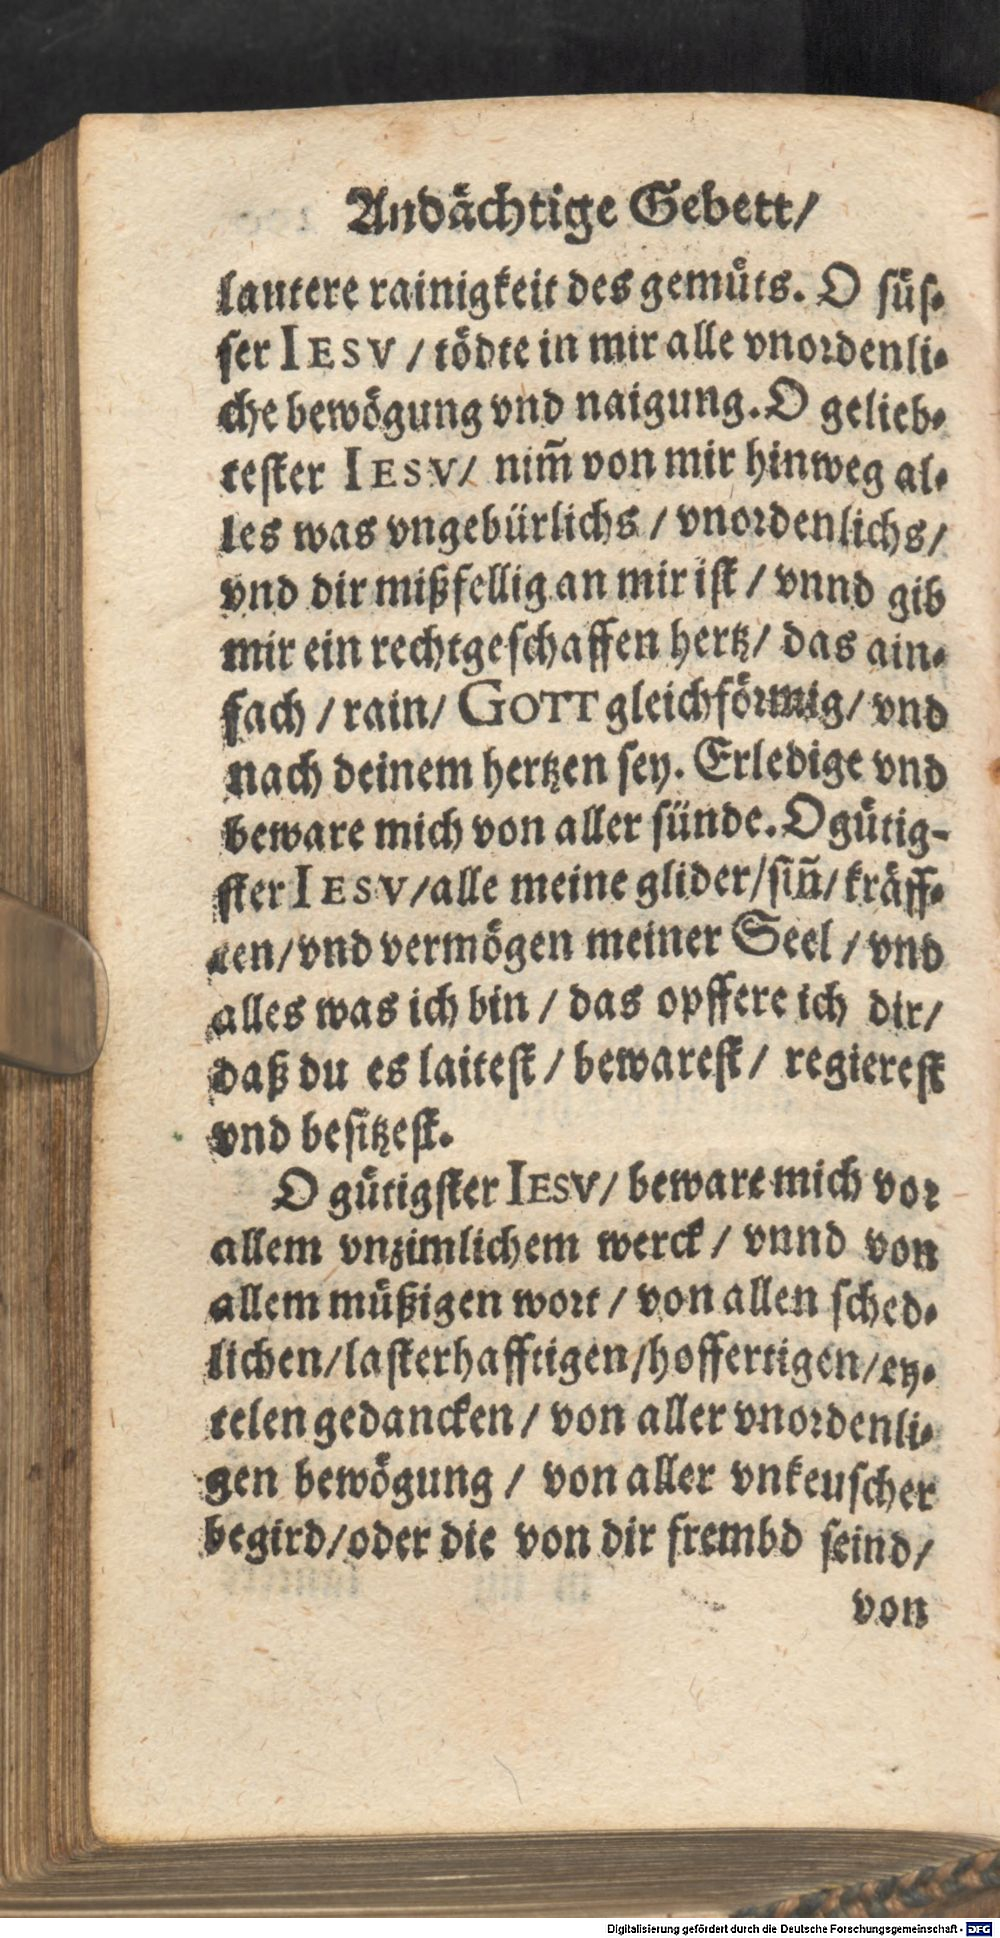 Andächtige Gebett/
lautere rainigkeit des gemuͤts. O suͤs-
ser IESV / tödte in mir alle vnordenli-
che bewoͤgung vnd naigung. O gelieb-
tester IESV/ nim̃ von mir hinweg al-
les was vngebürlichs / vnordenlichs/
vnd dir mißfellig an mir ist / vnnd gib
mir ein rechtgeschaffen hertz/ das ain-
fach / rain/ GOTT gleichförmig/ vnd
nach deinem hertzen sey. Erledige vnd
beware mich von aller sünde. O guͤtig-
ster IESV/alle meine glider/sin̄/ kräff-
ten/vnd vermögen meiner Seel / vnd
alles was ich bin / das opffere ich dir/
daß du es laitest / bewarest / regierest
vnd besitzest.
O guͤtigster IESV/ beware mich vor
allem vnzimlichem werck / vnnd von
allem muͤßigen wort / von allen sched-
lichen/lasterhafftigen/hoffertigen/ey-
telen gedancken / von aller vnordenli-
gen bewoͤgung / von aller vnkeuscher
begird/oder die von dir frembd seind/
von
Digitalisierung gefördert durch die Deutsche Forschungsgemeinschaft - DFG